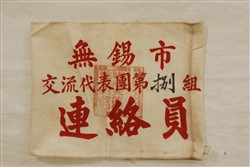 無錫市
交流代表團第捌組
連絡員